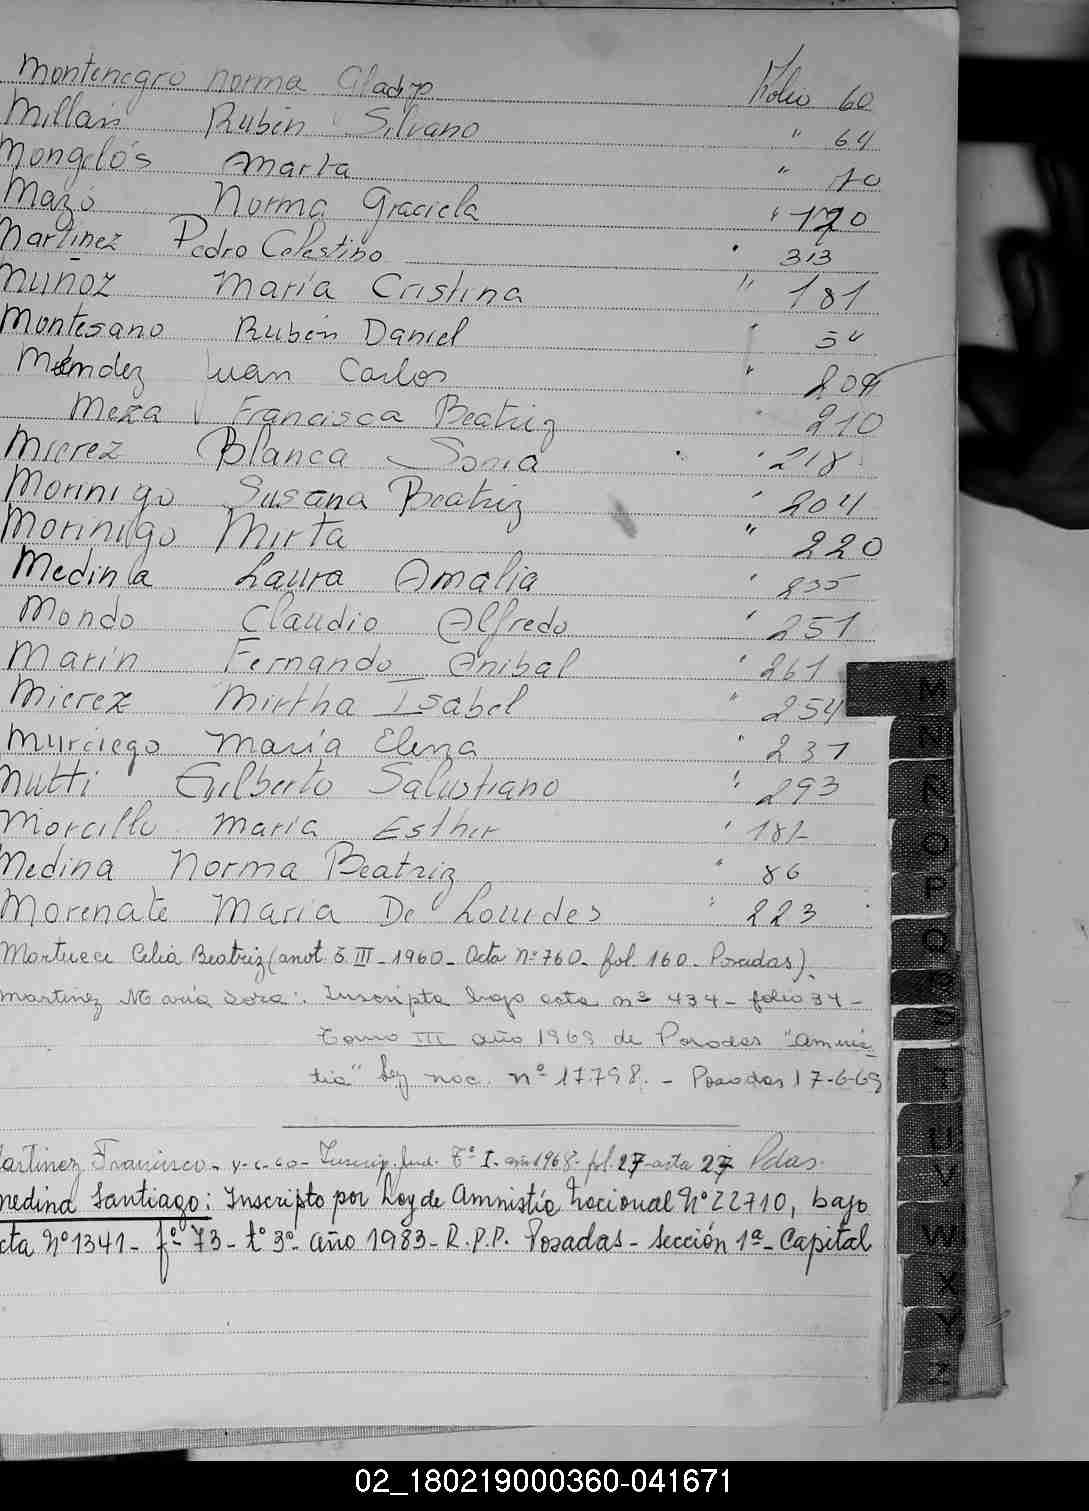 Montenegro Norma Gladys Folio 60
Millán Rubén Silvano " 64
Mongelós Marta " 70
Mazó Norma Graciela " 170
Martínez Pedro Celestino " 313
Muñoz María Cristina " 181
Montesano Rubén Daniel "
Méndez Juan Carlos " 209
Meza Francisca Beatriz " 210
Mierez Blanca Sonia " 218
Morinigo Susana Beatriz " 204
Morinigo Mirta " 220
Medina Laura Amalia " 235
Mondo Claudio Alfredo " 251
Marín Fernando Anibal " 261
Mierez Mirtha Isabel " 254
Murciego María Elena " 237
Mutti Gilberto Salustiano " 293
Morcillo María Esther " 182
Medina Norma Beatriz " 86
Morenate María De Lourdes " 223
Martucci Celia Beatriz (anot. 5 III - 1960 - Acta nº 760 - fol. 160 - Posadas).
Martinez María : Inscripta bajo acta nº 434 - folio 34 -
Tomo III año 1969 de Posadas "amnis-
tia" Ley nac. nº 17.798. - Posadas 17-6-69
artinez Francisco - Tº I - año 1968 - fol. 27 - acta 27 Pdas.
Medina Santiago: Inscripto por Ley de Amnistía Nacional Nº 22710, bajo
cta Nº 1341 - fº 73 - tº 3º - año 1983 - R.P.P. Posadas - Sección 1ª - Capital
M
N
Ñ
O
P
Q
R
S
T
U
V
W
X
Y
Z
02_180219000360-041671